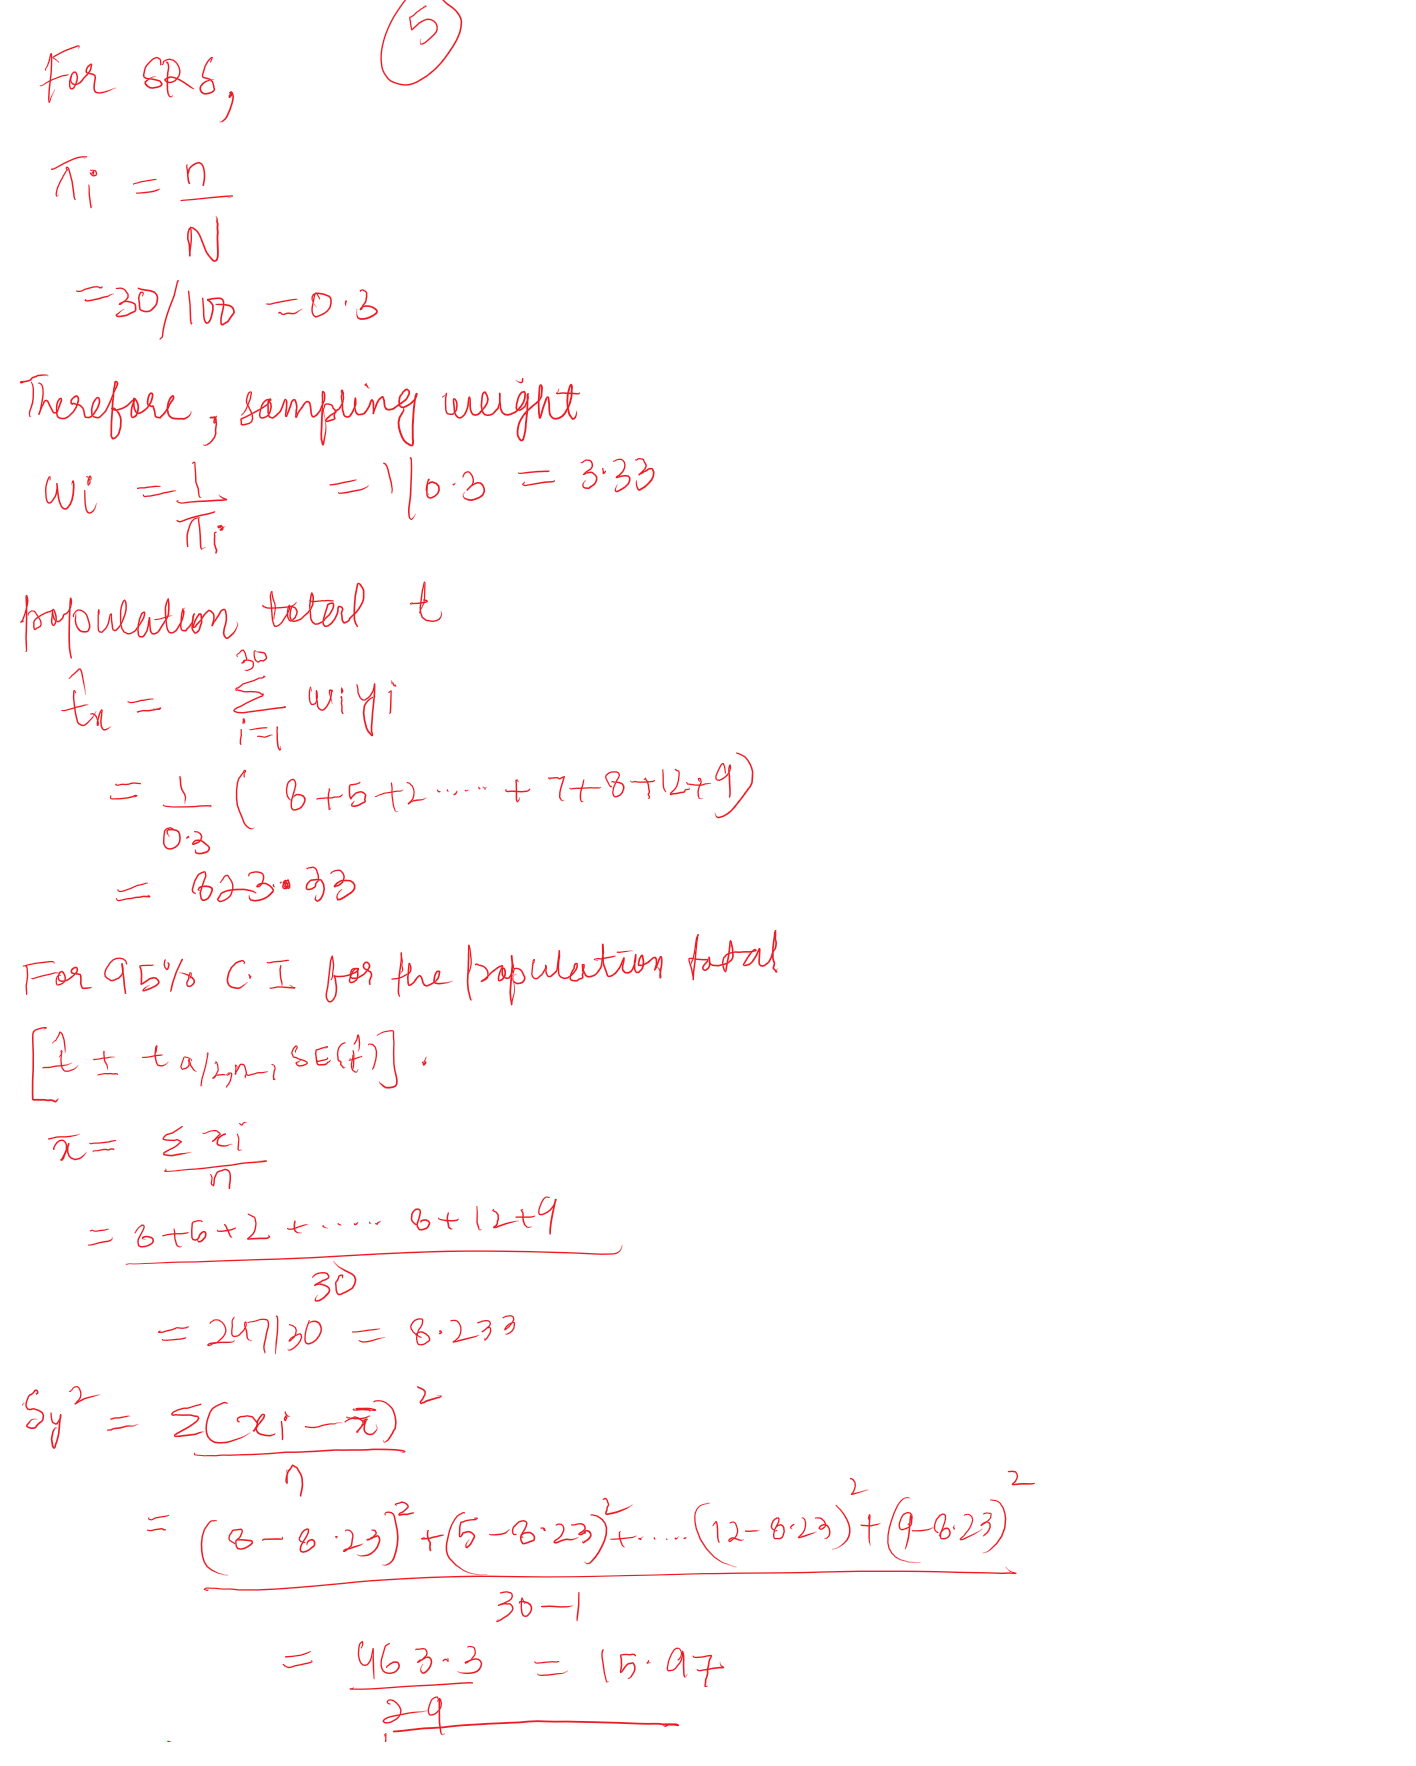 5
For SRS,
πi = n/N
=30/100 = 0.3
Therefore, sampling weight
wi = 1/πi = 1/0.3 = 3.33
population total t
t̂n = Σ_{i=1}^{30} wiyi
= 1/0.3 ( 8+5+2 ..... + 7+8+12+9)
= 823.33
For 95% C.I for the population total
[t̂ ± t a/2,n-1 SE(t̂)].
x̄ = Σ xi / n
= 8+5+2 + ..... 8+12+9 / 30
= 247/30 = 8.233
Sy² = Σ(xi – x̄)² / n
= (8–8.23)² + (5–8.23)² + ..... (12–8.23)² + (9–8.23)² / 30–1
= 463.3 / 29 = 15.97